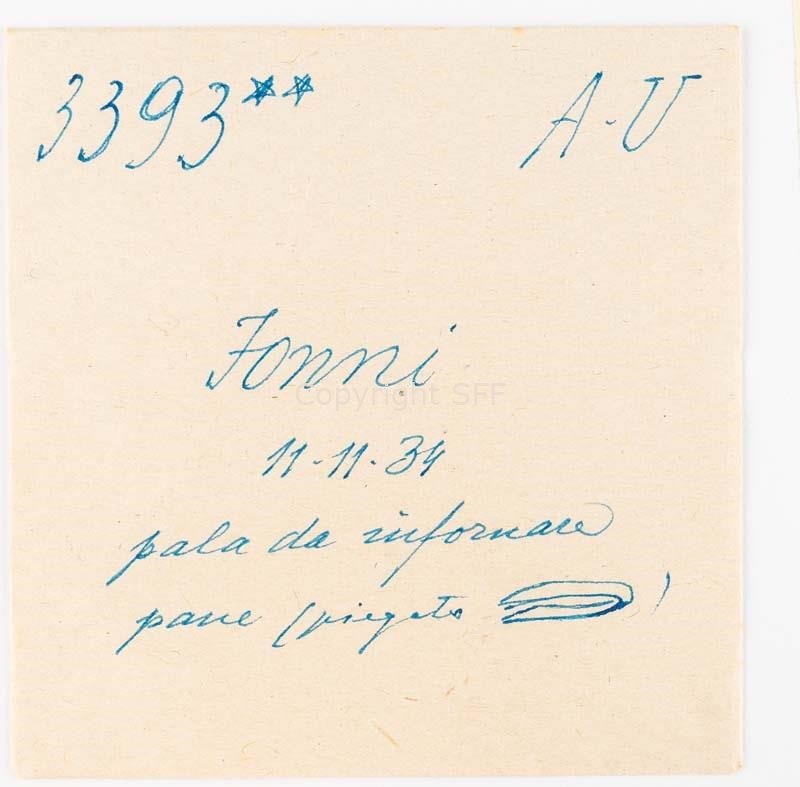 3393** A-U
Fonni
Copyright SFF
11-11-34
pala da infornare
pane (piegato )